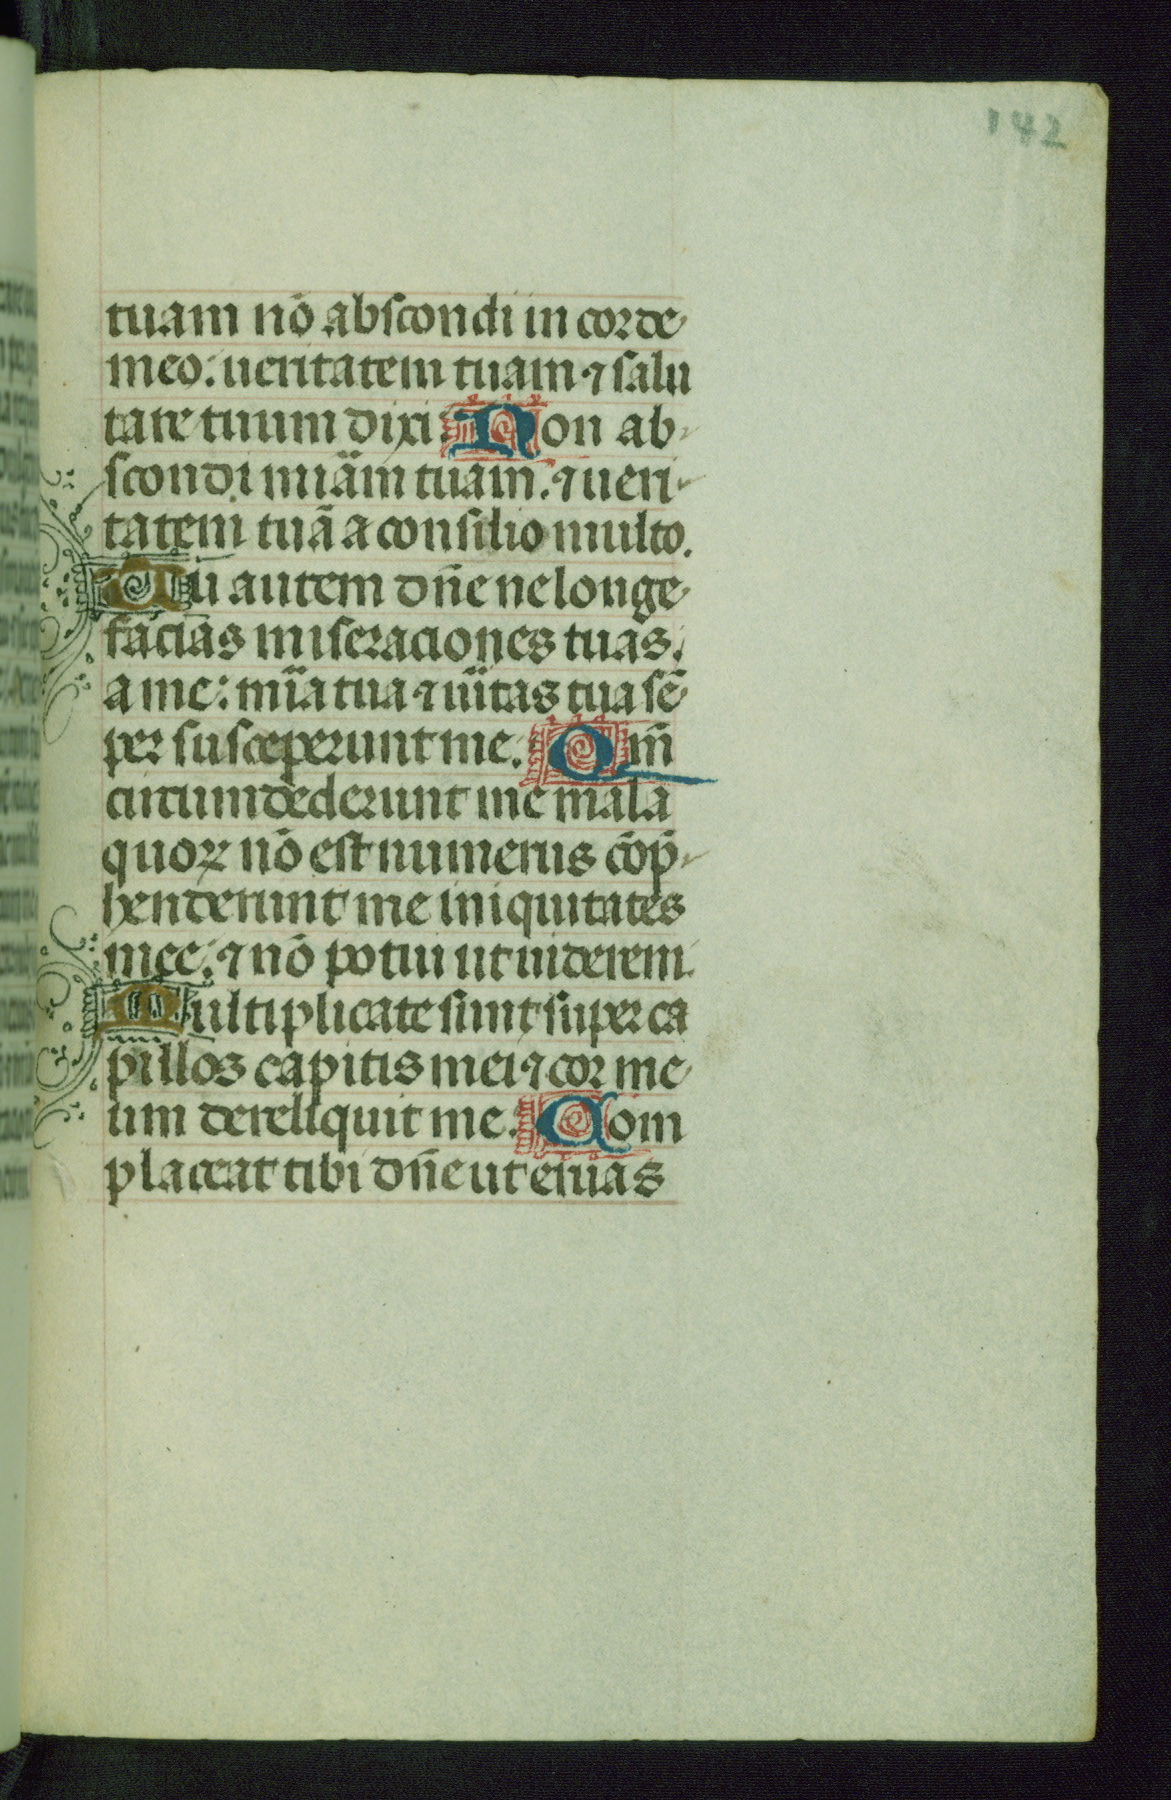 142
tuam nō abscondi in corde
meo: ueritatem tuam ⁊ salu
tare tuum dixi. Non ab-
scondi miām tuam. ⁊ ueri-
tatem tuā a consilio multo.
Tu autem dn̄e ne longe
facias miseraciones tuas.
a me: mīa tua ⁊ uītas tua sē
per susceperunt me. Qm̄
circumdederunt me mala
quoꝝ nō est numerus cōp̄-
henderunt me iniquitates
mee. ⁊ nō potui ut uiderem.
Multiplicate sunt super ca
pillos capitis mei ⁊ cor me
um dereliquit me. Com
placeat tibi dn̄e ut eruas